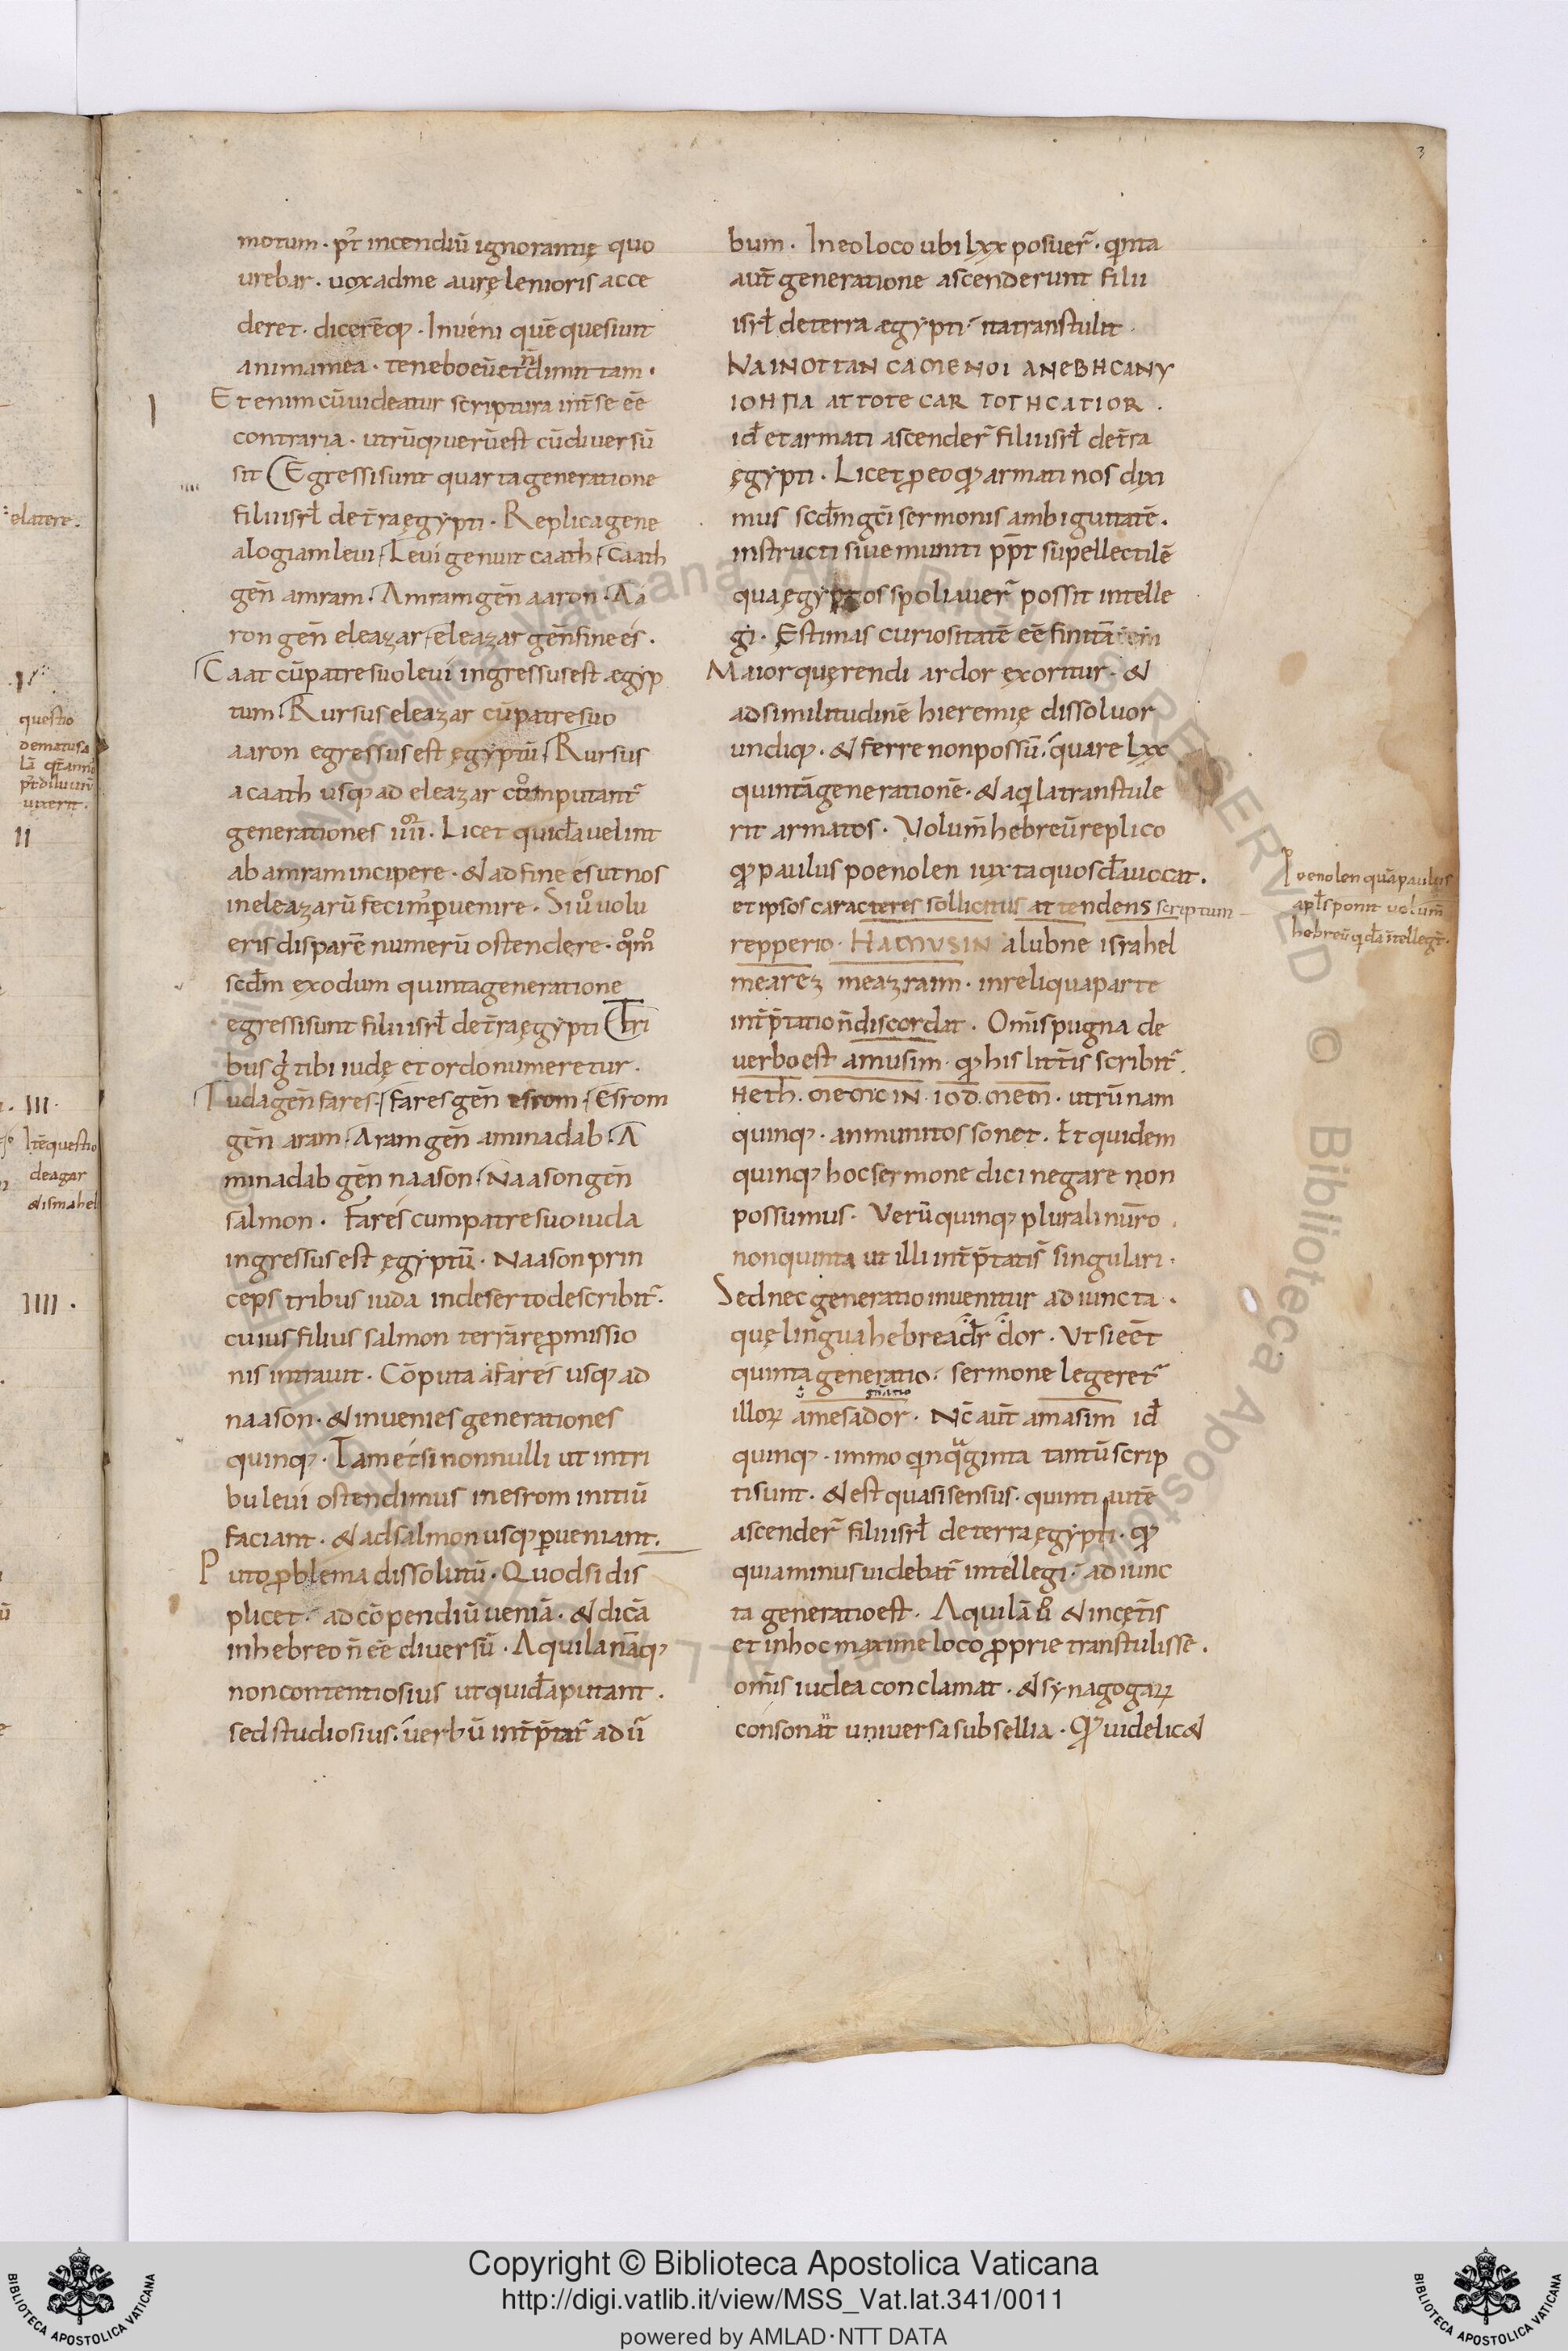 3
motum · p̄t incendiū ignorantię quo
urebar · uox ad me aurę lenioris acce
deret · dicerēq; · Inueni quē quesiuit
anima mea · tenebo eū et n̄ dimittam ·
Et enim cū uideatur scriptura int̄ se eē
contraria · utrūq; uerū est cū diuersū
sit Egressi sunt quarta generatione
filii isrł de t̄ra ęgypti · Replica gene
alogiam leui · Leui genuit caath · Caath
gēn amram · Amram gēn aaron · Aa
ron gēn eleazar · eleazar gēn finees ·
Caat cū patre suo leui ingressus est ægyp
tum · Rursus eleazar cū patre suo
aaron egressus est ęgyptū · Rursus
a caath usq; ad eleazar computant᷑
generationes iiii · Licet quidā uelint
ab amram incipere · & ad finees ut nos
in eleazarū fecim᷒ peruenire · Si uͦ uolu
eris disparē numerū ostendere · qͦmͦ
scdm̄ exodum quinta generatione
egressi sunt filii isrł de t̄ra ęgypti Tri
bus ḡ tibi iudę et ordo numeretur ·
Iuda gēn fares · fares gēn esrom · Esrom
gēn aram · Aram gēn aminadab · A
minadab gēn naason · Naason gēn
salmon · Fares cum patre suo iuda
ingressus est ęgyptū · Naason prin
ceps tribus iuda in deserto describit᷑ ·
cuius filius salmon terrā repromissio
nis intrauit · Cōputa a fares usq; ad
naason · & inuenies generationes
quinq; · Tametsi nonnulli ut in tri
bu leui ostendimus in esrom initiū
faciant · & ad salmon usq; perueniant ·
Puto problema dissolutū · Quod si dis
plicet · ad cōpendiū ueniā · & dicā
in hebreo n̄ eē diuersū · Aquila nāq;
non contentiosius ut quidā putant ·
sed studiosius · uerbū int̄p̄tat᷑ ad ū
bum · In eo loco ubi lxx posuer᷑ · qͥnta
aut̄ generatione ascenderunt filii
isrł de terra ægypti · ita transtulit ·
ΝΑΙΝΟΤΤΑΝ CΑΜΕΝΟΙ ΑΝΕΒΗCΑΝΥ
ΙΟΗΠΑ ΑΤΤΟΤΕ CΑR ΤΟΤΗCΑΤΙΟR ·
id̄ et armati ascender᷑ filii isrł de t̄ra
ęgypti · Licet pro eo qd armati nos dixi
mus scdm̄ greci sermonis ambiguitatē ·
instructi siue muniti pp̄t supellectilē
qua ęgyptos spoliauer᷑ possit intelle
gi · Estimas curiositatē eē finitā
Maior querendi ardor exoritur · &
ad similitudinē hieremię dissoluor
undiq; · & ferre non possū · quare lxx
quintā generationē · & aqͥla transtule
rit armatos · Volum̄ hebreū replico
qd paulus poenolen iuxta quosdā uocat ·
et ipsos caracteres sollicitius attendens scriptum
repperio · HAMUSIN alubne israhel
mearez meazraim · in reliqua parte
int̄p̄tatio n̄ discordat · Om̄is pugna de
uerbo est amusim · qd his litt̄is scribit᷑ ·
Heth · MEM SIN · IOD · MEM · utrū nam
quinq; · an munitos sonet · Et quidem
quinq; hoc sermone dici negare non
possumus · Verū quinq; plurali nūro ·
non quinta ut illi int̄p̄tati s̄ singulari ·
Sed nec generatio inuenitur adiuncta ·
quę lingua hebrea dr̄ dor · Ut si eēt
quinta generatio · sermone legeret᷑
gn̄atio
illoꝝ amesa dor · Nc̄ aut̄ amasim id̄
quinq; · immo qͥnqᷓginta tantū scrip
ti sunt · & est quasi sensus · quinti autē
ascender᷑ filii isrł de terra ęgypti · qd
quia minus uidebat᷑ intellegi · adiunc
ta generatio est · Aquilā uͦ & in cęt̄is
et in hoc maxime loco proprie transtulisse ·
om̄is iudea conclamat · & synagogaꝝ
consonant uniuersa subsellia · Qd uidelic&
Poenolen quā paulus
apłs ponit uolum̄
hebreū qͥdā intellegt̄ ·
I
IIII
elatere ·
questio
de matusa
lā qt̄ annis
p᷒t diluuiū
uixerit ·
II
III ·
Itē questio
de agar
& ismahel
IIII ·
Copyright © Biblioteca Apostolica Vaticana
http://digi.vatlib.it/view/MSS_Vat.lat.341/0011
powered by AMLAD·NTT DATA
BIBLIOTECA APOSTOLICA VATICANA
BIBLIOTECA APOSTOLICA VATICANA